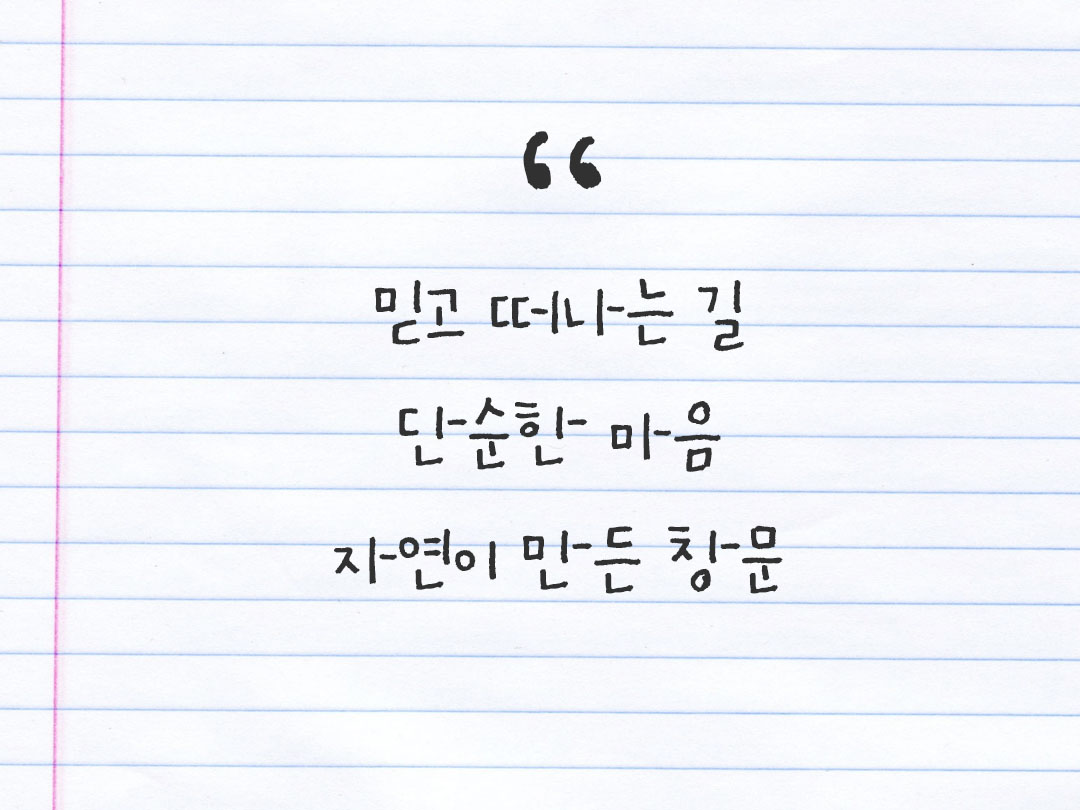 “
믿고 떠나는 길
단순한 마음
자연이 만든 창문